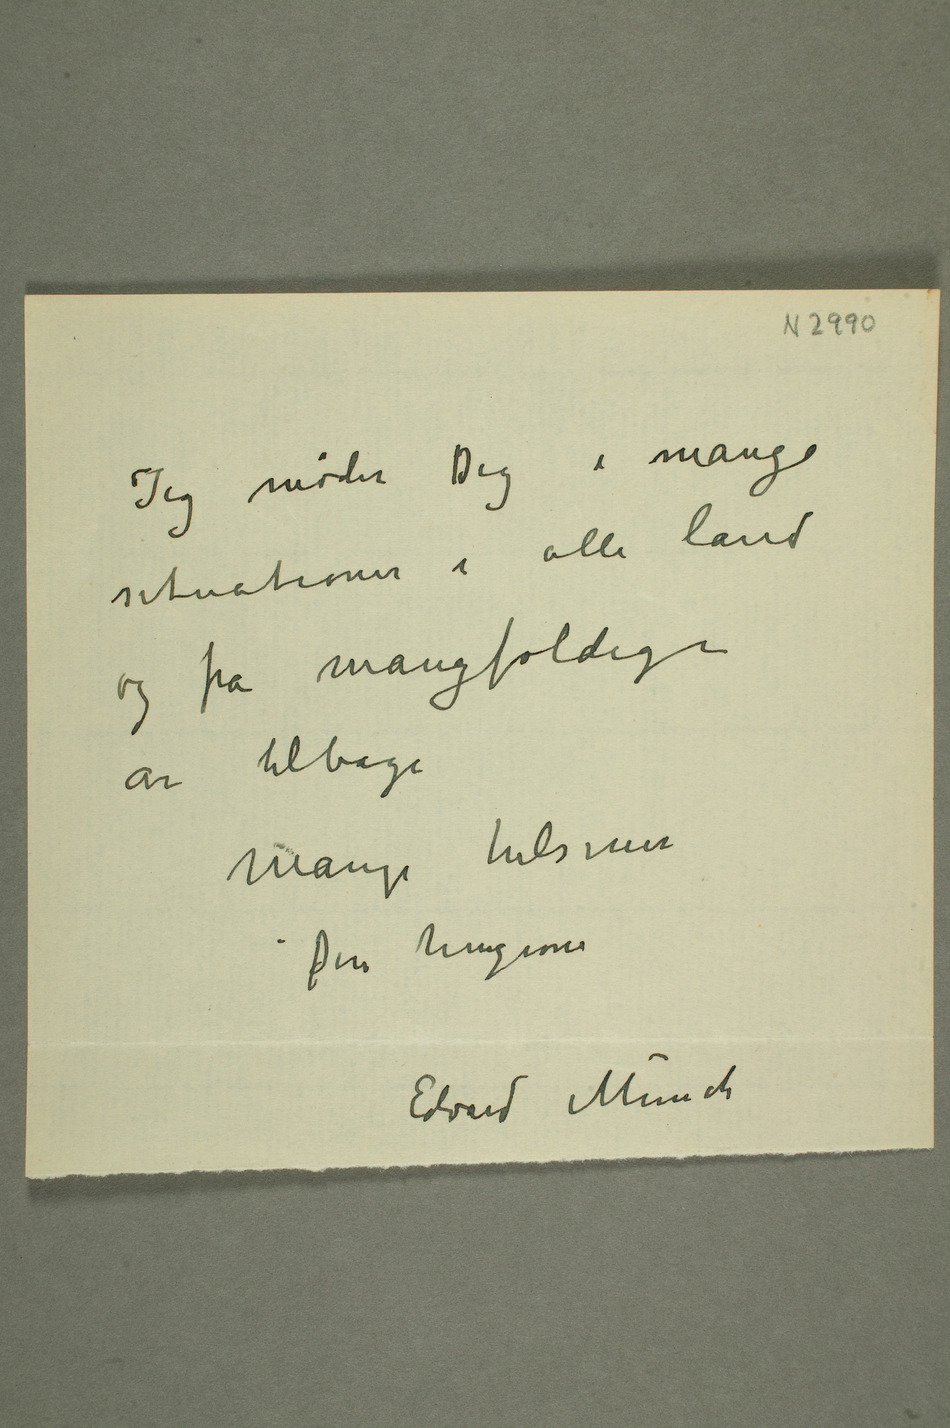 N 2990
Jeg møder Dig i mange
situationer i alle land
og fra mangfoldige
år tilbage
Mange hilsener
Din hengivne
Edvard Munch